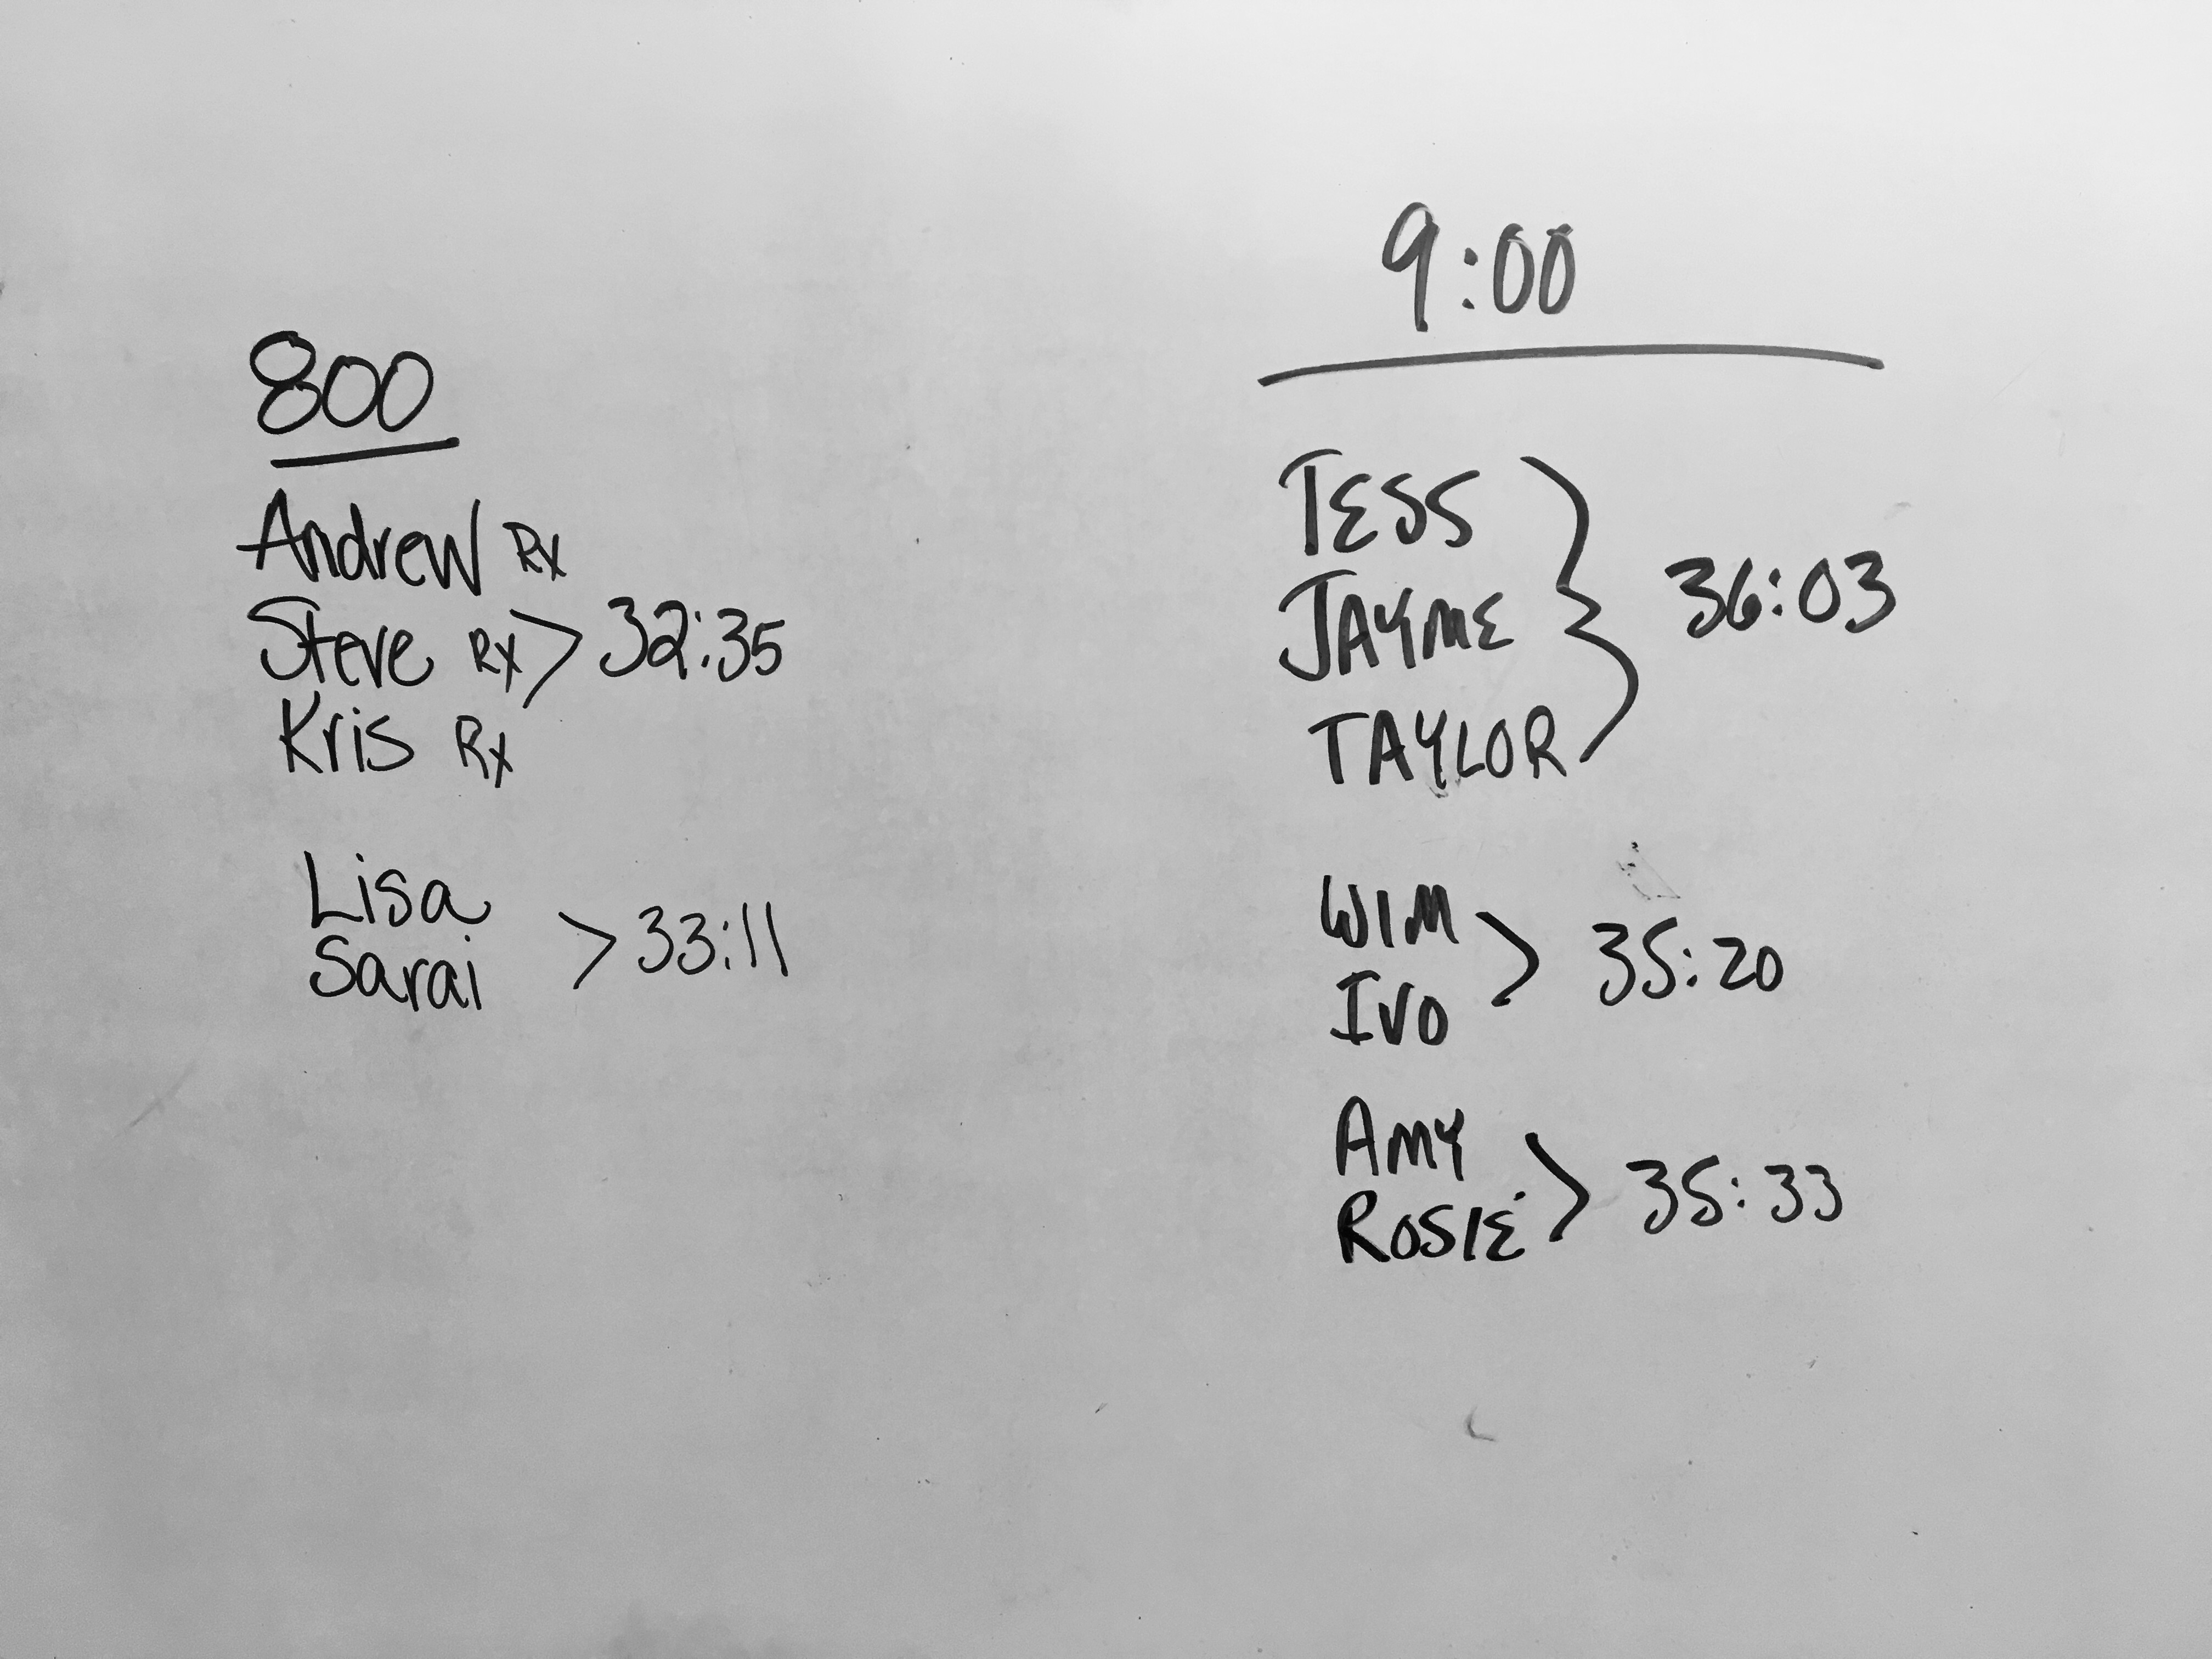 800
Andrew Rx
Steve Rx > 32:35
Kris Rx
Lisa
Sarai > 33:11
9:00
TESS
JAYME } 36:03
TAYLOR
WIM
IVO > 35:20
AMY
ROSIE > 35:33